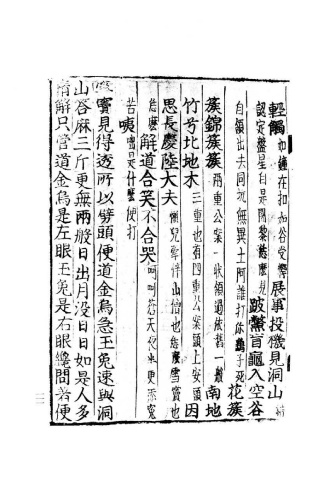 輕觸如鐘在扣如谷受響展事投機見洞山錯
認定盤星自是闍黎恁麼見跛鱉盲龜入空谷
自領出去同坑無異土阿誰打你鷂子死花簇
簇錦簇簇兩重公案一狀領過依舊一般南地
竹兮北地木三重也有四重公案頭上安頭因
思長慶陸大夫癩兒牽伴山僧也恁麼雪竇也
恁麼解道合笑不合哭呵呵蒼天夜半更添寃
苦咦咄是什麼便打
雪竇見得透所以劈頭便道金烏急玉兔速與洞
山答麻三斤更無兩般日出月沒日日如是人多
情解只管道金烏是左眼玉兔是右眼纔問著便